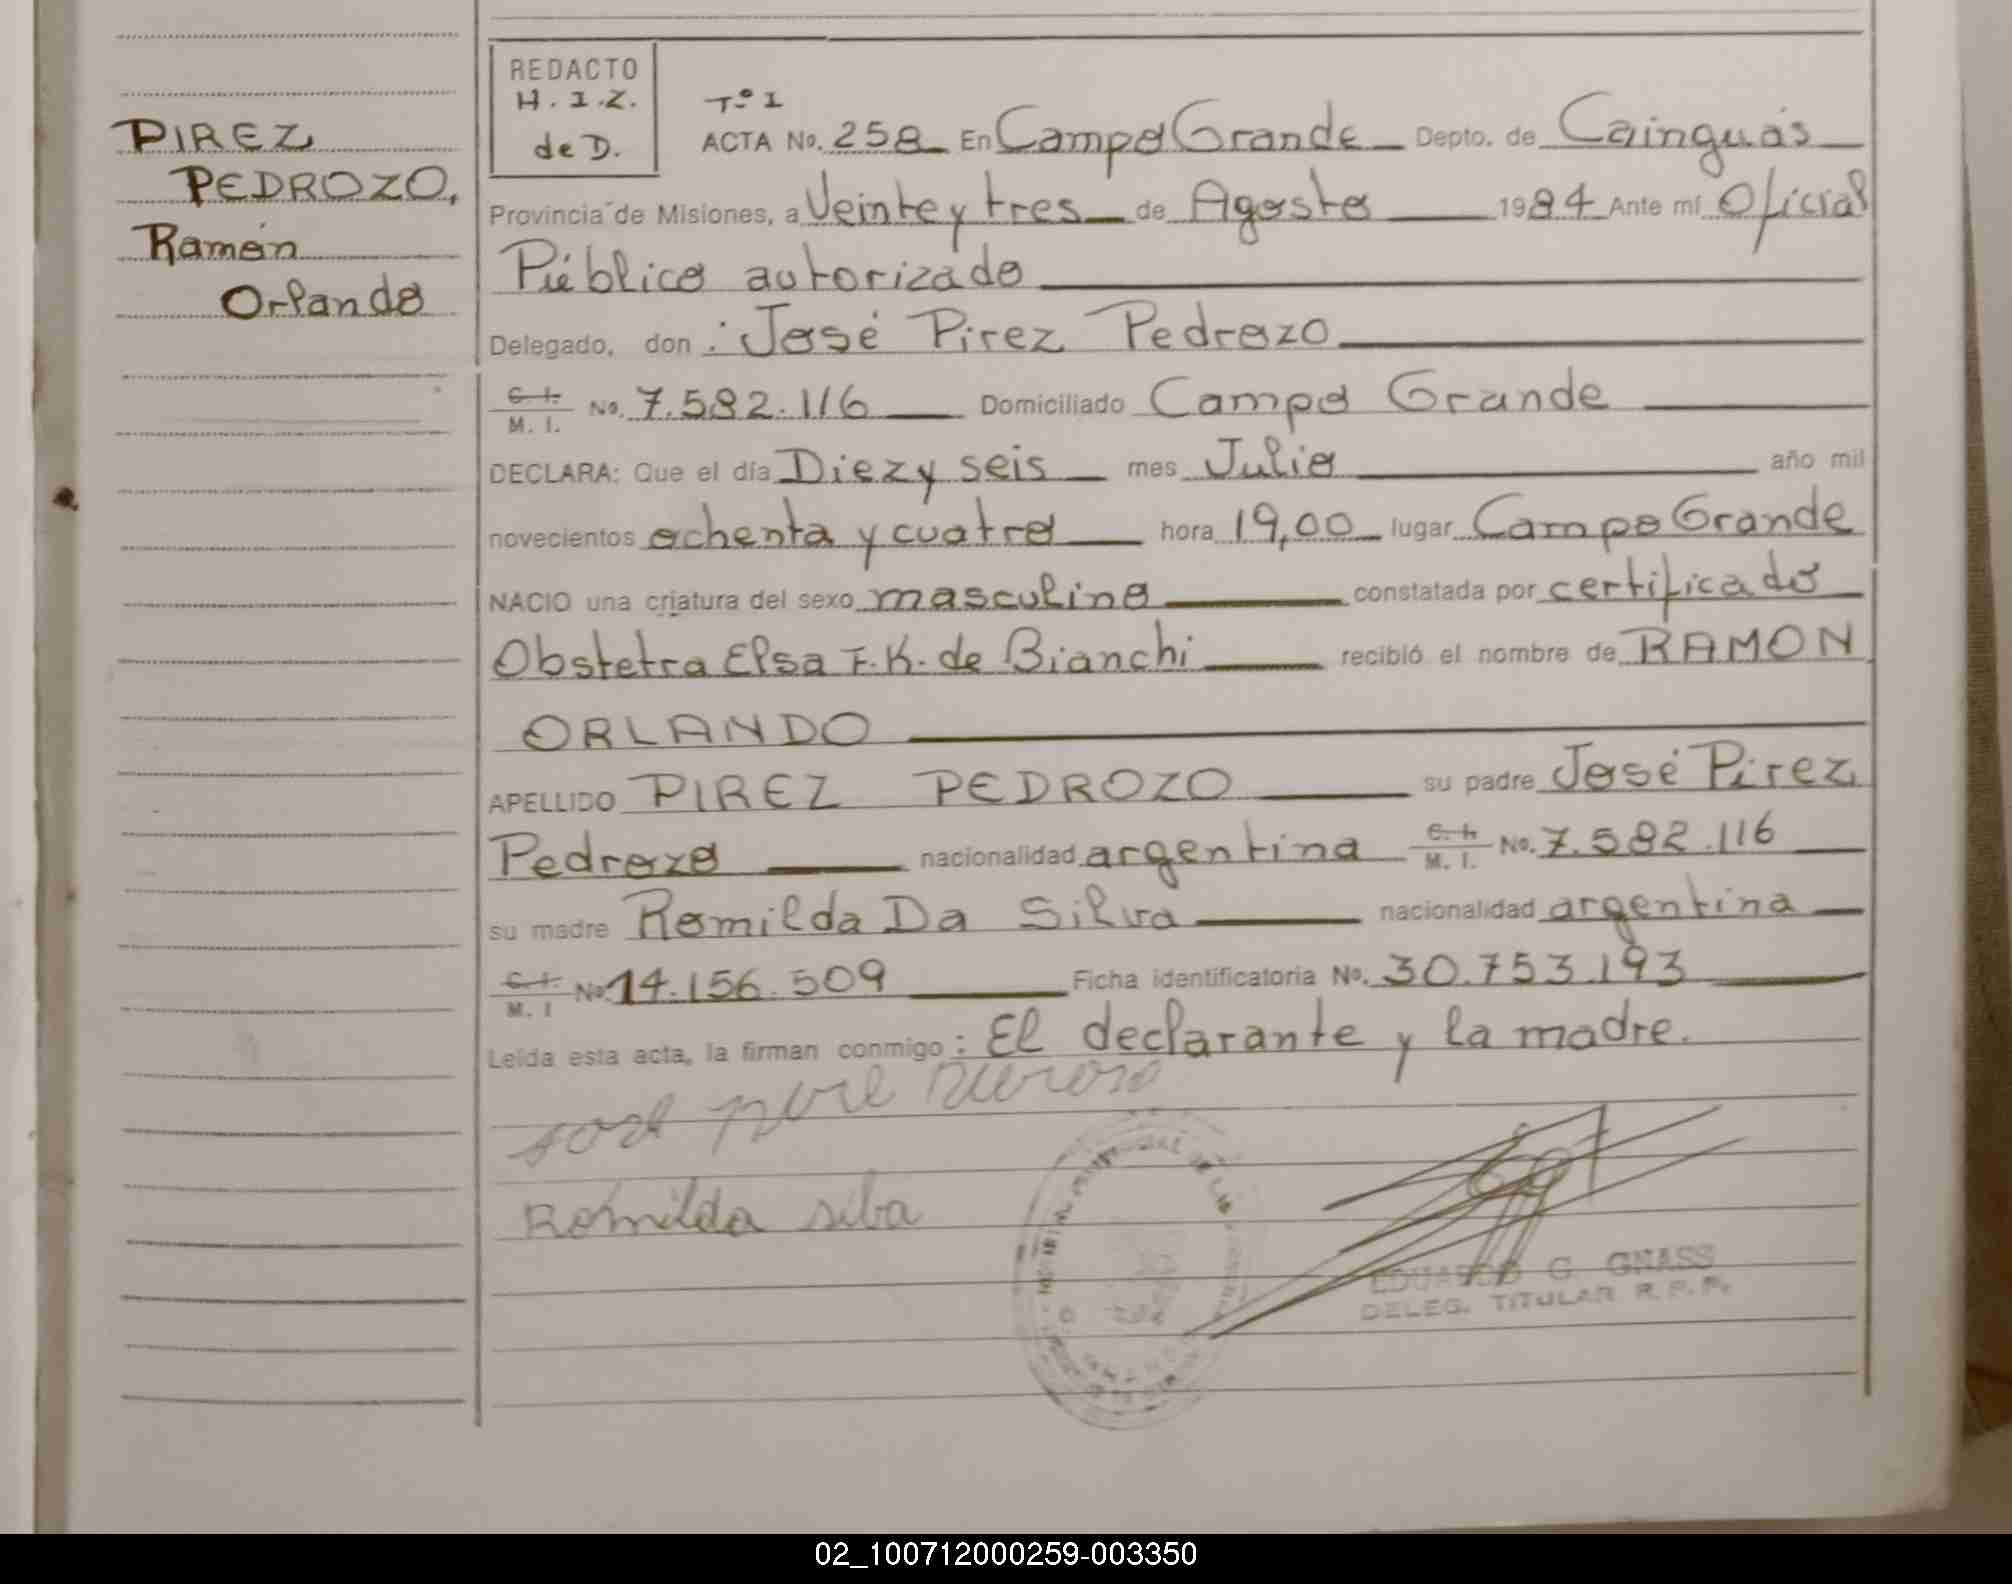 PIREZ
PEDROZO,
Ramón
Orlando
REDACTO
H.I.Z.
de D.
Tº I
ACTA No. 258 En Campo Grande Depto. de Cainguás
Provincia de Misiones, a Veinte y tres de Agosto 1984 Ante mí Oficial
Público autorizado
Delegado, don : José Pirez Pedrozo
C.I. M.I. No. 7.582.116 Domiciliado Campo Grande
DECLARA: Que el día Diez y seis mes Julio año mil
novecientos ochenta y cuatro hora 19,00 lugar Campo Grande
NACIO una criatura del sexo masculino constatada por certificado
Obstetra Elsa F.K. de Bianchi recibió el nombre de RAMON
ORLANDO
APELLIDO PIREZ PEDROZO su padre José Pirez
Pedrozo nacionalidad argentina C.I. M.I. No. 7.582.116
su madre Romilda Da Silva nacionalidad argentina
C.I. M.I No 14.156.509 Ficha identificatoria No. 30.753.193
Leída esta acta, la firman conmigo : El declarante y la madre.
Romilda silba
EDUARDO G. GNASS
DELEG. TITULAR R.P.P.
02_100712000259-003350